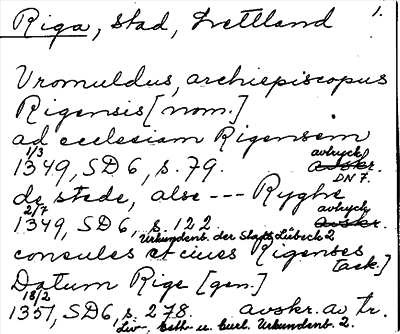 Riga, stad, Lettland 1.
Vromuldus, archiepiscopus
Rigensis [nom.]
ad ecclesiam Rigensem
1/3 avtryck
1349, SD 6, s. 79. avskr.
DN 7.
de stede, alse --- Ryghe
2/7 avtryck
1349, SD 6, s. 122 avskr.
Urkundenb. der Stadt Lübeck 2
consules et cives Rigenses
[ack.]
Datum Rige [gen.]
18/2
1351, SD 6, s. 278. avskr. av tr.
Liv-, Esth- u. Curl. Urkundenb. 2.